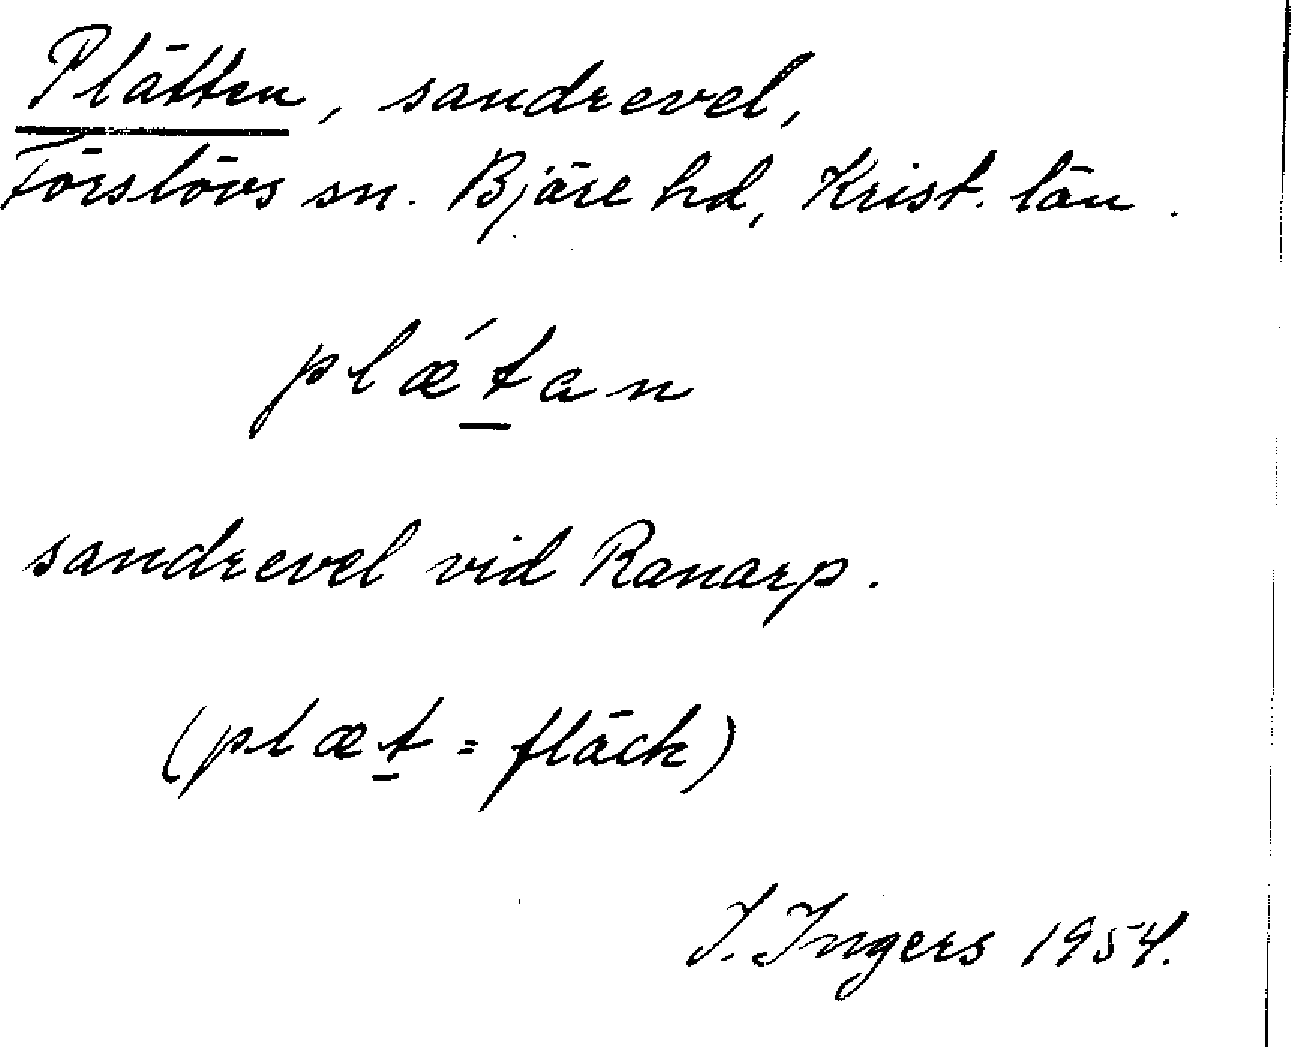 Plätten, sandrevel,
Förslövs sn. Bjäre hd, Krist. län.
plǽt̲an
sandrevel vid Ranarp.
(plæt̲ = fläck)
I. Ingers 1954.